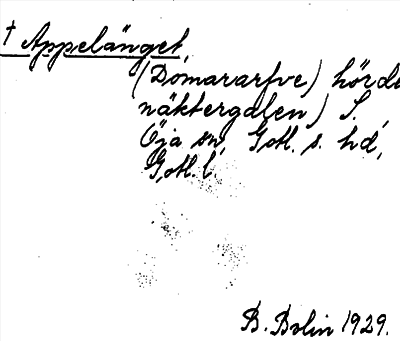 † Appelänget,
(Domararfve) hörde
näktergalen) S.,
Öja sn, Gotl. s. hd,
Gotl. l.
B. Bolin 1929.